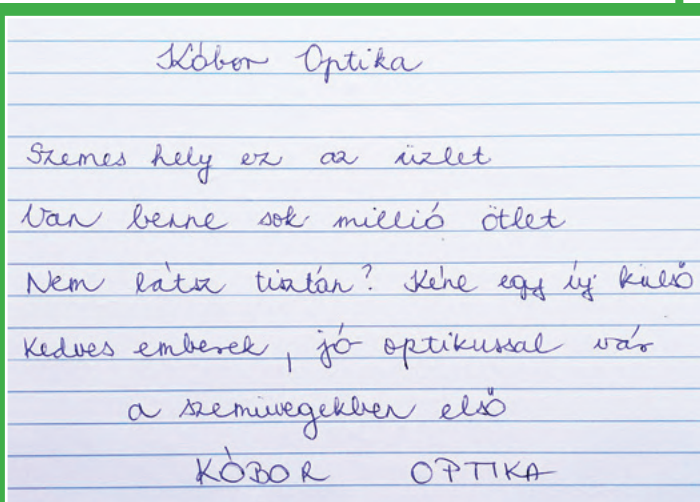 Kóbor Optika
Szemes hely ez az üzlet
Van benne sok millió ötlet
Nem látsz tisztán? Kéne egy új külső
Kedves emberek, jó optikussal vár
a szemüvegekben első
KÓBOR OPTIKA